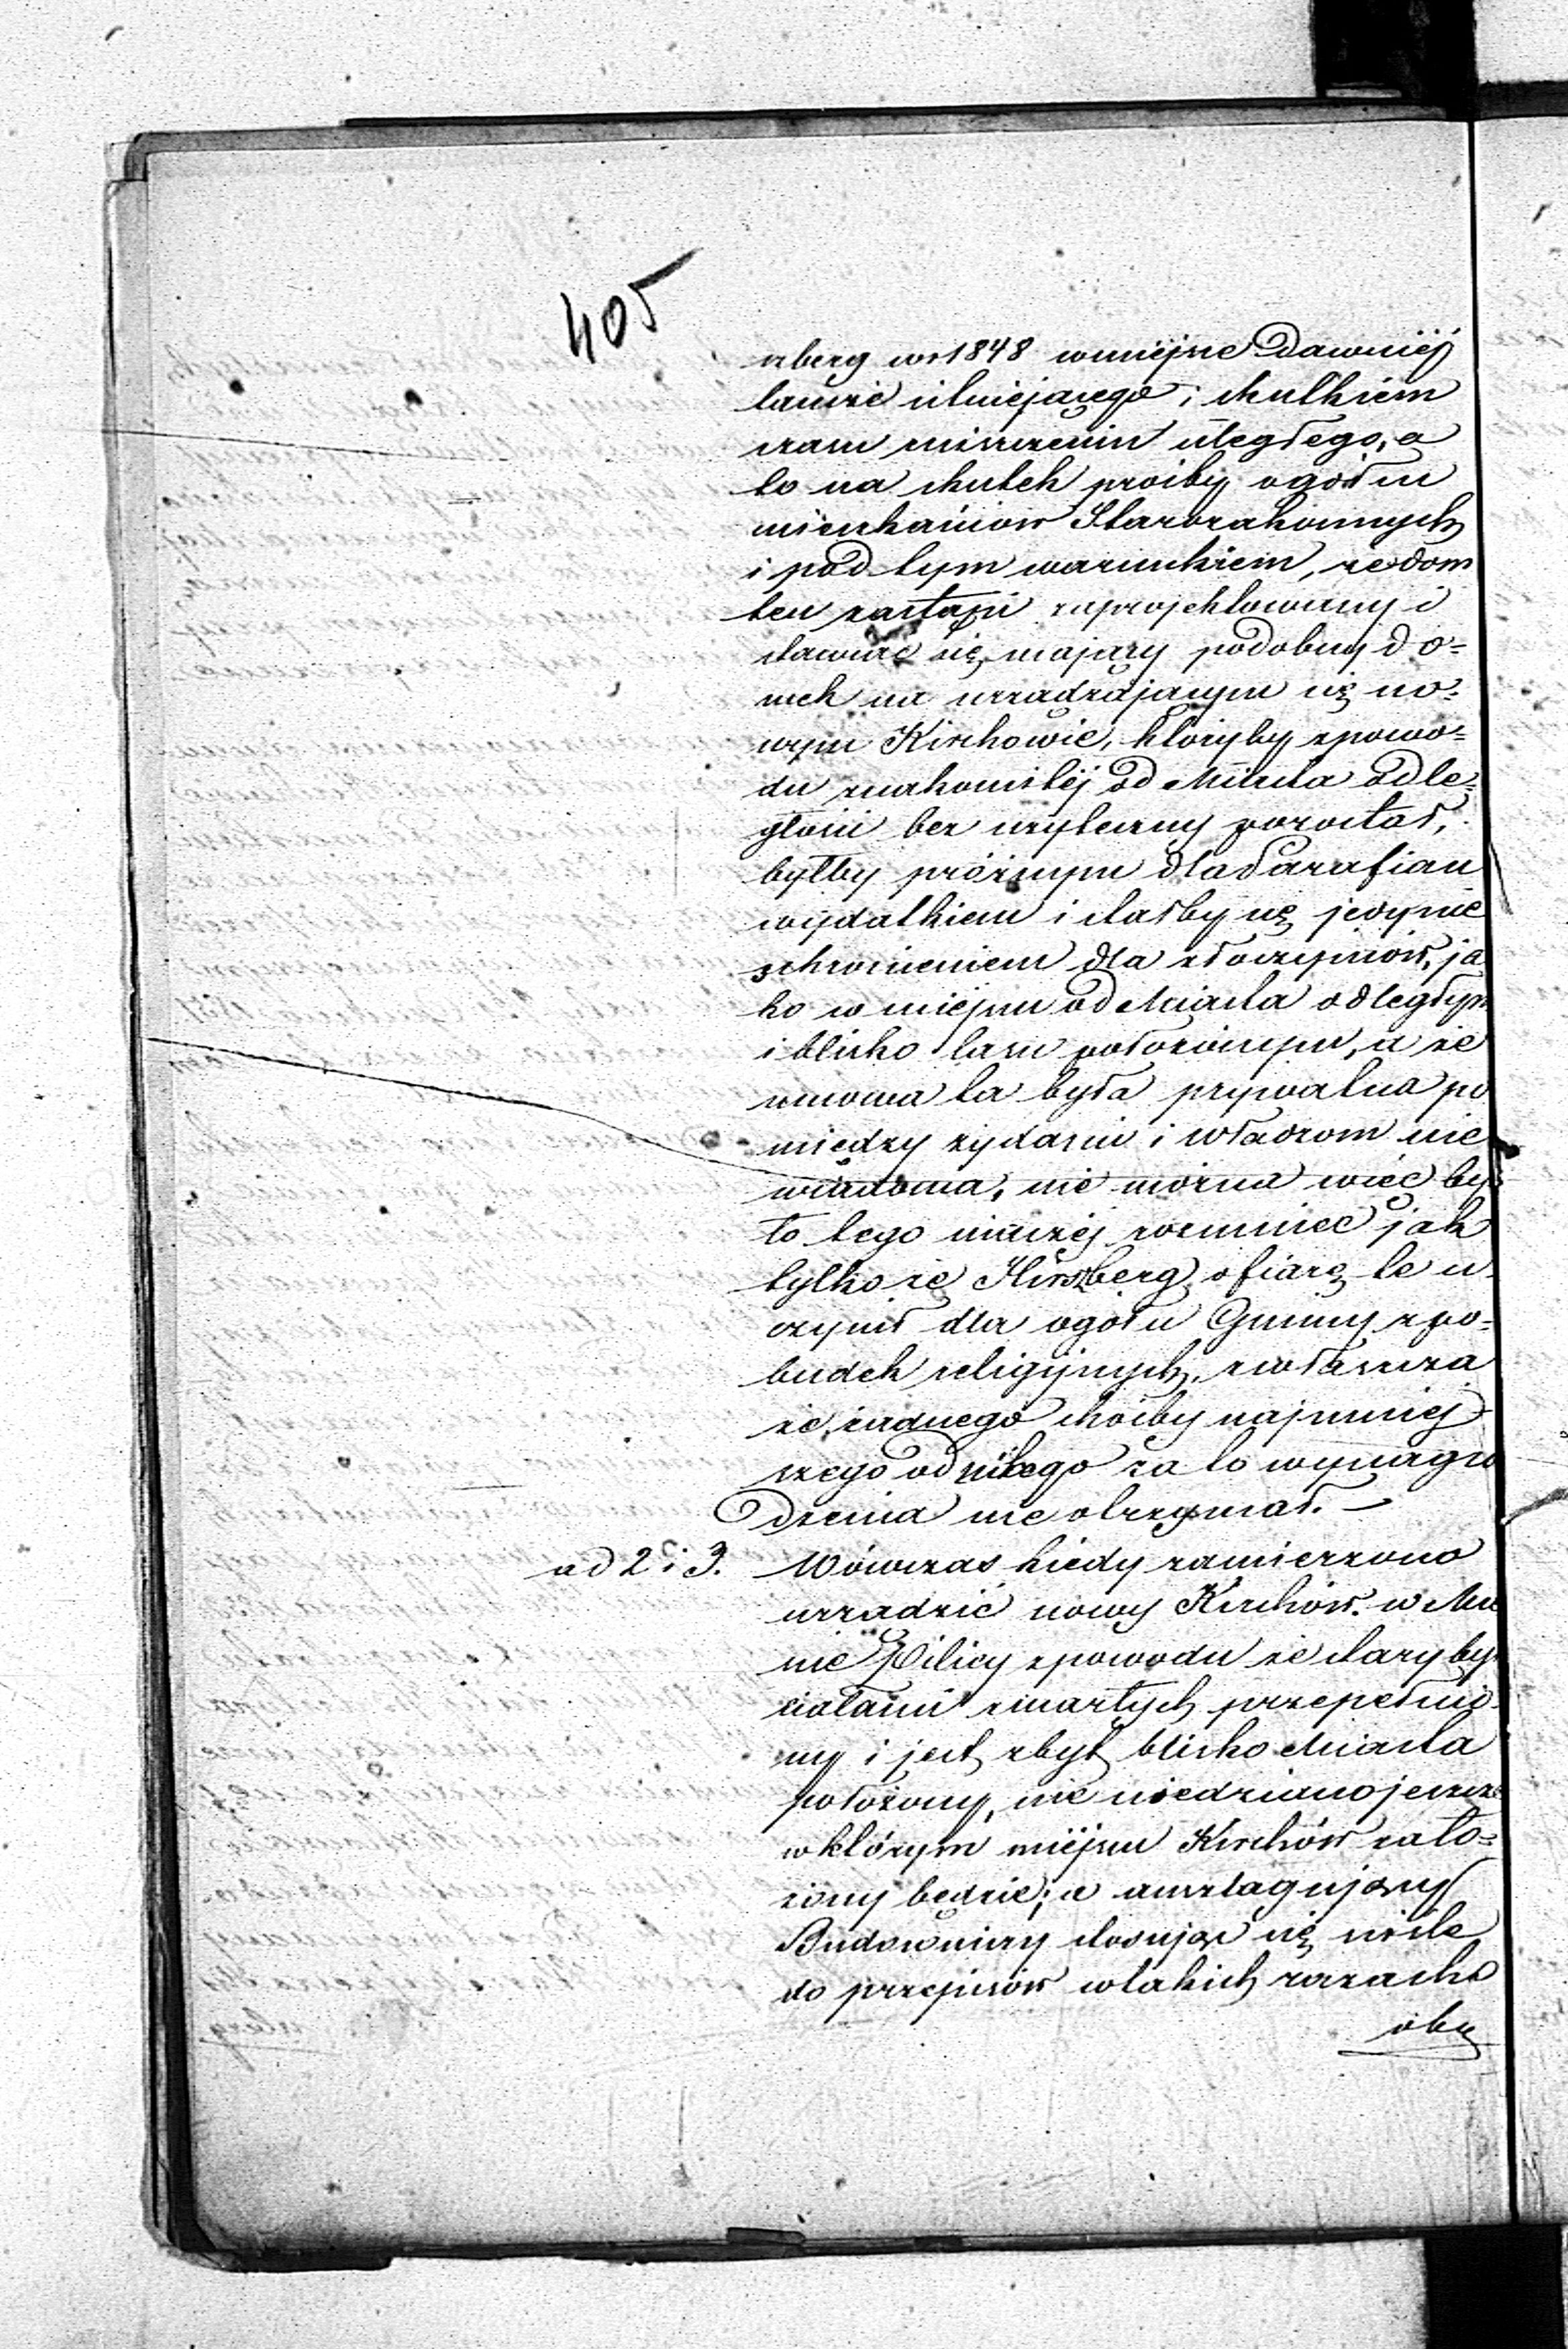 405
nberg w r 1848 w miejsce dawniéj
tamże istniejącego i skutkiem
czasu zniszczeniu uległego, a
to na skutek prośby ogółu
mieszkańców Starozakonnych
i pod tym warunkiem, że dom
ten zastąpi zaprojektowany i
stawiać się mający podobny do=
mek na urządzającym się no=
wym Kirchowie, któryby z powo=
du znakomitéj od Miasta odle=
głości bez użyteczny pozostał,
byłby próżnym dla Parafian
wydatkiem i stałby się jedynie
schronieniem dla złoczyńców, ja
ko w miejscu od Miasta odległym
i blisko lasu położonym, a że
umowa ta była prywatna po
między żydami i władzom nie
wiadoma, nie można więc by
ło tego inaczéj rozumieć jak
tylko że Hirszberg ofiarę te u
czynił dla ogółu Gminy z po=
budek religijnych, zwłaszcza
że żadnego choćby najmniej
szego od nikogo za to wynagro
dzenia nie otrzymał. —
ad 2 i 3. Wówczas kiedy zamierzono
urządzić nowy Kirchów w Mie
ście Pilicy z powodu że stary był
ciałami zmarłych przepełnio
ny i jest zbyt blisko Miasta
położony, nie wiedziano jeszcze
w którym miejscu Kirchów zało=
żony będzie; a anszlagujący
Budowniczy stosując się ściśle
do przepisów w takich razach
obo